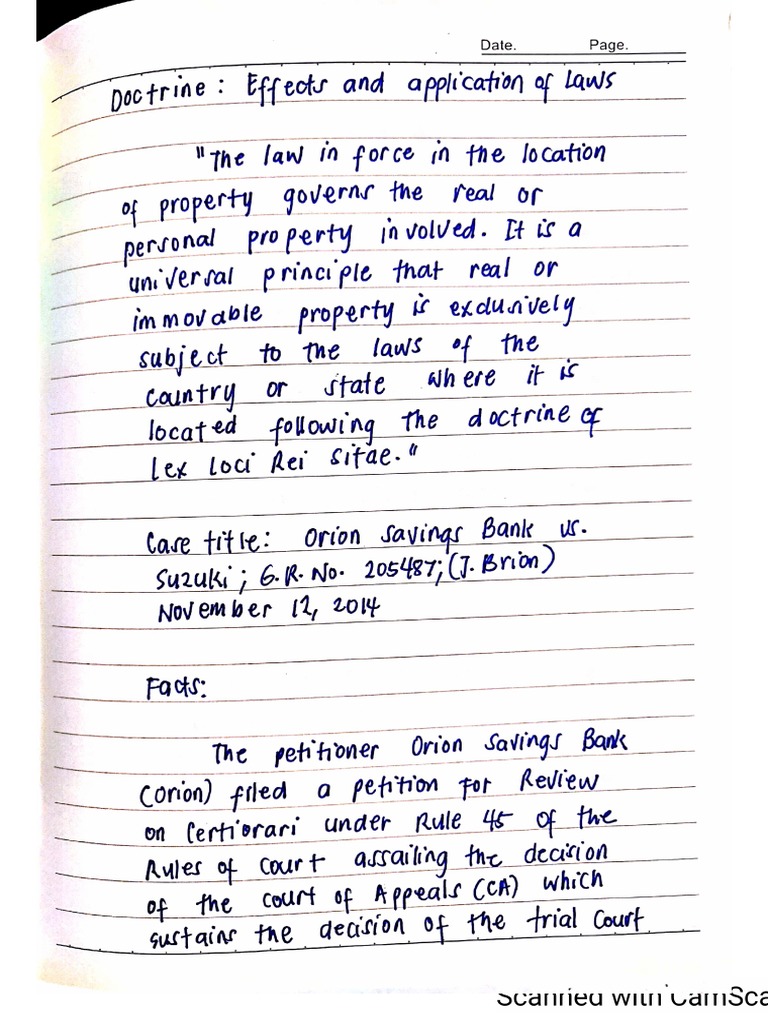 Date. Page.
Doctrine: Effects and application of Laws
"The law in force in the location
of property governs the real or
personal property involved. It is a
universal principle that real or
immovable property is exclusively
subject to the laws of the
country or state where it is
located following the doctrine of
Lex Loci Rei Sitae."
Case title: Orion Savings Bank vs.
Suzuki; G.R. No. 205487; (J. Brion)
November 12, 2014
Facts:
The petitioner Orion Savings Bank
(Orion) filed a petition for Review
on Certiorari under Rule 45 of the
Rules of Court assailing the decision
of the court of Appeals (CA) which
sustains the decision of the trial Court
Scanned with CamSca